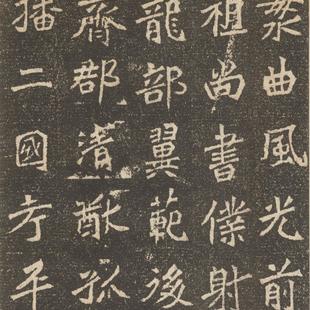 曲風光前
祖尚書僕射
龍部翼範後
齊郡清猷孤
播二國平